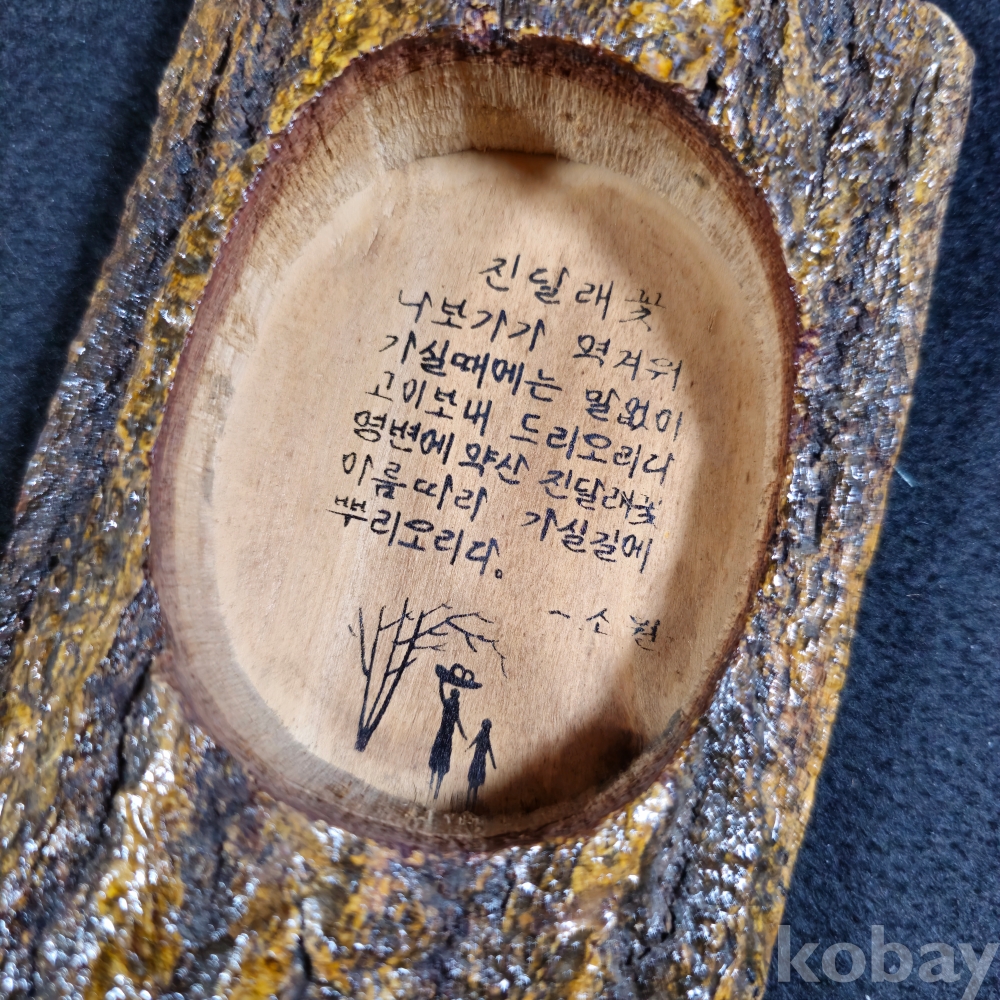 진달래꽃
나보기가 역겨워
가실때에는 말없이
고이보내 드리오리다
영변에 약산 진달래꽃
아름따라 가실길에
뿌리오리다.
-소월
kobay